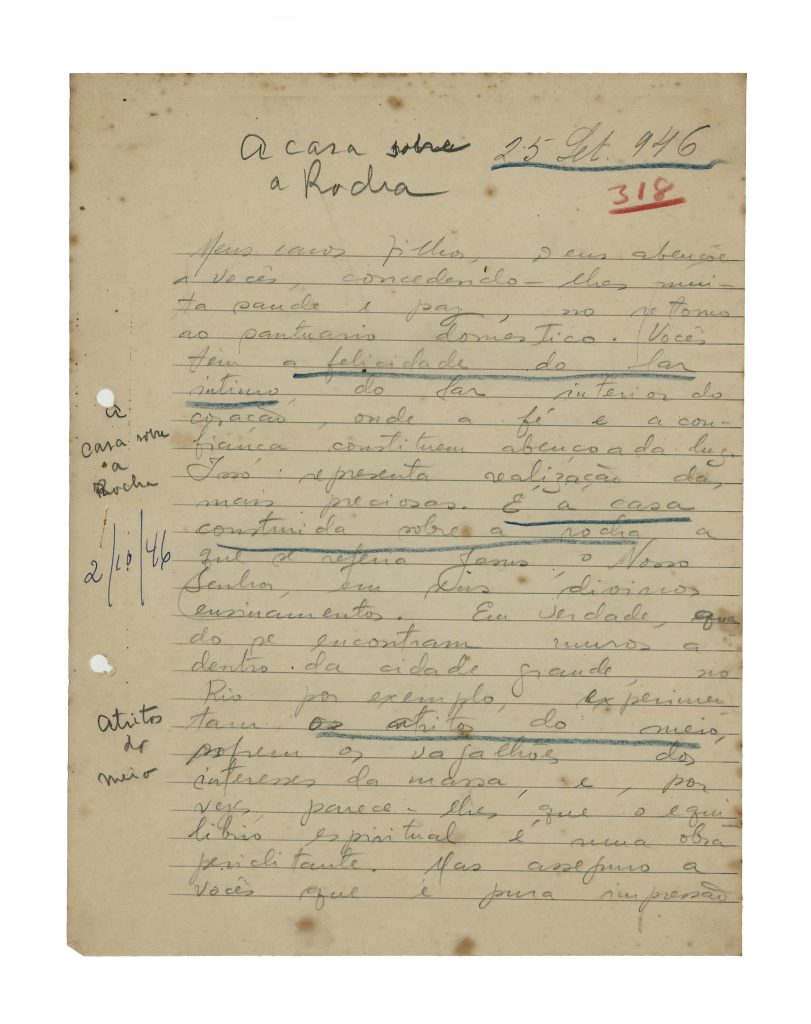 A casa sobre
a Rocha
25 Set. 946
318
Meus caros filhos, Deus abençõe
a vocês, concedendo-lhes mui-
ta saude e paz, no retorno
ao santuario domestico. Vocês
têm a felicidade do lar
intimo, do lar interior do
coração, onde a fé e a con-
fiança constituem abençoada luz.
Isso representa realização das
mais preciosas. É a casa
construida sobre a rocha a
que se referia Jesus, o Nosso
Senhor, em seus divinos
ensinamentos. Em verdade, quan
do se encontram muros a
dentro da cidade grande, no
Rio por exemplo, experimen
tam os atritos do meio,
sofrem os vagalhões dos
interesses da massa, e, por
vezes, parece-lhes que o equi
librio espiritual é uma obra
periclitante. Mas asseguro a
vocês que é pura impressão
a
casa sobre
a
Rocha
2/10/46
Atritos
do
meio